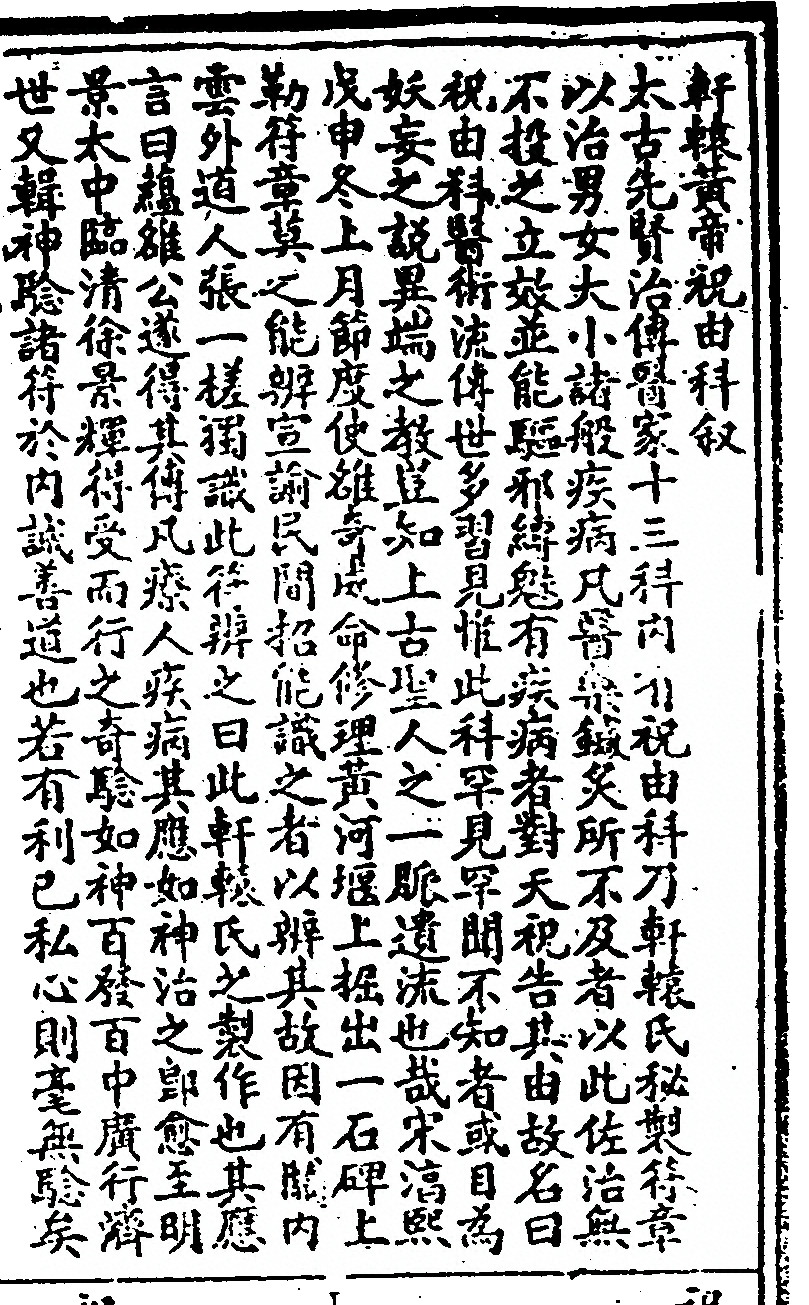 軒轅黃帝祝由科叙
太古先賢治傳醫家十三科內有祝由科乃軒轅氏秘製符章
以治男女大小諸般疾病凡醫藥鍼炙所不及者以此佐治無
不投之立效並能驅邪縛魅有疾病者對天祝告其由故名曰
祝由科醫術流傳世多習見惟此科罕見罕聞不知者或目為
妖妄之説異端之教豈知上古聖人之一脈遺流也哉宋淳熙
戊申冬上月節度使雒奇成命修理黃河堰上掘出一石碑上
勒符章莫之能辨宣諭民間招能識之者以辨其故因有關內
雲外道人張一槎獨識此符辨之曰此軒轅氏之製作也其應
言曰蘊雒公遂得其傳凡療人疾病其應如神治之即愈至明
景太中臨清徐景輝得受而行之奇驗如神百發百中廣行濟
世又輯神驗諸符於內誠善道也若有利已私心則毫無驗矣